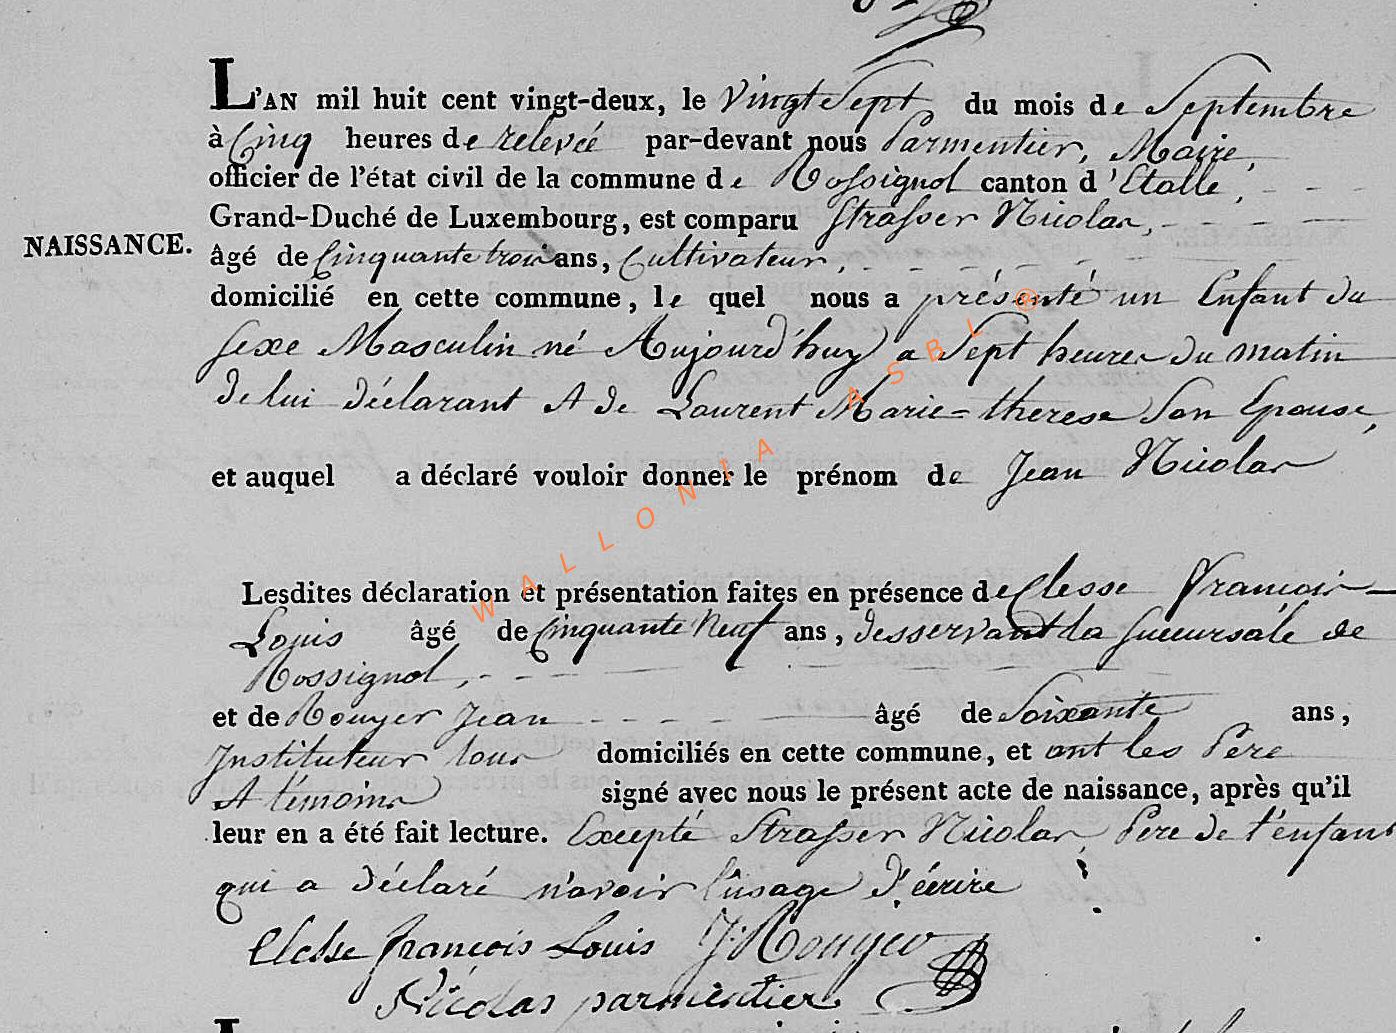 L'AN mil huit cent vingt-deux, le Vingt Sept du mois de Septembre
à Cinq heures de relevée par-devant nous Parmentier, Maire,
officier de l'état civil de la commune de Rossignol canton d'Etalle,
Grand-Duché de Luxembourg, est comparu Strasser Nicolas,
NAISSANCE. âgé de Cinquante trois ans, Cultivateur,
domicilié en cette commune, le quel nous a présenté un Enfant du
sexe Masculin né Aujourd'huy a Sept heures du matin
de lui déclarant & de Laurent Marie-therese Son Epouse,
et auquel a déclaré vouloir donner le prénom de Jean Nicolas
Lesdites déclaration et présentation faites en présence de Clesse Francois
Louis âgé de Cinquante Neuf ans, desservant la succursale de
Rossignol,
et de Rouyer Jean âgé de Soixante ans,
Instituteur tous domiciliés en cette commune, et ont les Père
& témoins signé avec nous le présent acte de naissance, après qu'il
leur en a été fait lecture. Excepté Strasser Nicolas Père de l'enfant
qui a déclaré n'avoir l'usage d'écrire
Clesse françois Louis J: Rouyer
Nicolas parmentier
WALLONIA ASBL ®